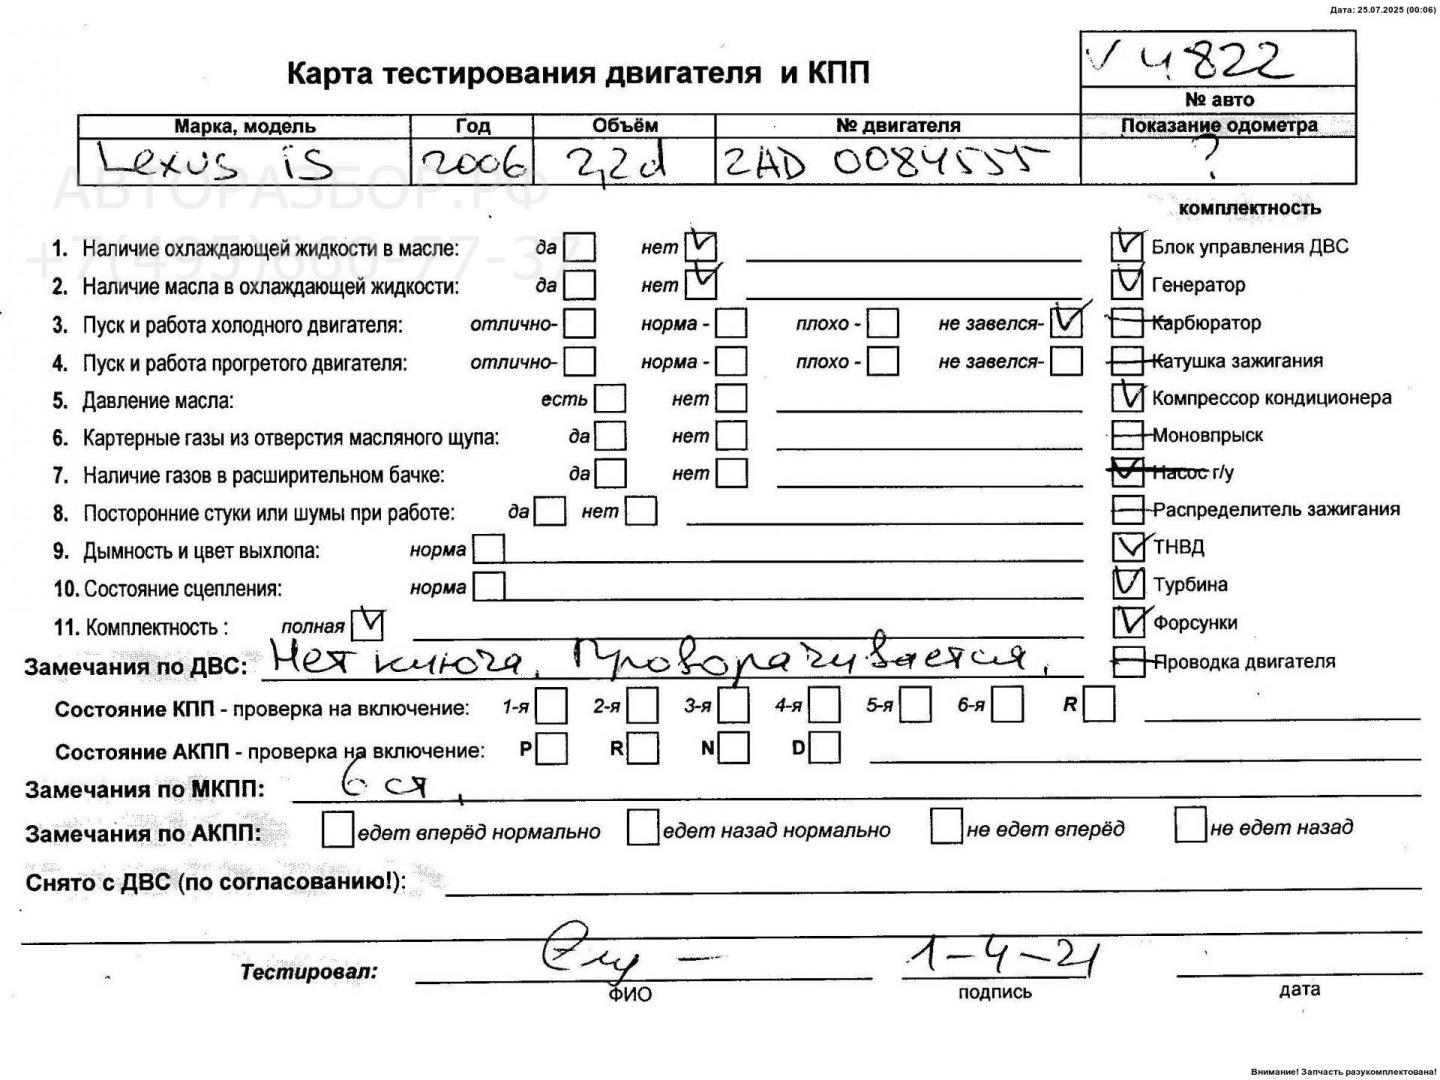 Дата: 25.07.2025 (00:06)
V 4822
Карта тестирования двигателя и КПП
№ авто
Марка, модель Год Объём № двигателя Показание одометра
Lexus is 2006 2,2d 2AD 0084555 ?
АВТОРАЗБОР.РФ
+7(495)660-77-37
комплектность
1. Наличие охлаждающей жидкости в масле: да нет Блок управления ДВС
2. Наличие масла в охлаждающей жидкости: да нет Генератор
3. Пуск и работа холодного двигателя: отлично- норма - плохо - не завелся- Карбюратор
4. Пуск и работа прогретого двигателя: отлично- норма - плохо - не завелся- Катушка зажигания
5. Давление масла: есть нет Компрессор кондиционера
6. Картерные газы из отверстия масляного щупа: да нет Моновпрыск
7. Наличие газов в расширительном бачке: да нет Насос г/у
8. Посторонние стуки или шумы при работе: да нет Распределитель зажигания
9. Дымность и цвет выхлопа: норма ТНВД
10. Состояние сцепления: норма Турбина
11. Комплектность : полная Форсунки
Замечания по ДВС: Нет ключа. Проворачивается. Проводка двигателя
Состояние КПП - проверка на включение: 1-я 2-я 3-я 4-я 5-я 6-я R
Состояние АКПП - проверка на включение: P R N D
Замечания по МКПП: 6 ст.
Замечания по АКПП: едет вперёд нормально едет назад нормально не едет вперёд не едет назад
Снято с ДВС (по согласованию!):
Тестировал: 1-4-21
ФИО подпись дата
Внимание! Запчасть разукомплектована!